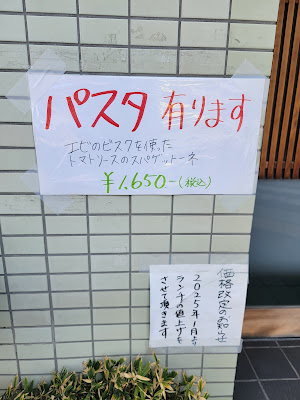 パスタ 有ります
エビのビスクを使った
トマトソースのスパゲットーネ
¥1.650-(税込)
価格改定のお知らせ
2025年1月より
ランチの値上げを
させて頂きます